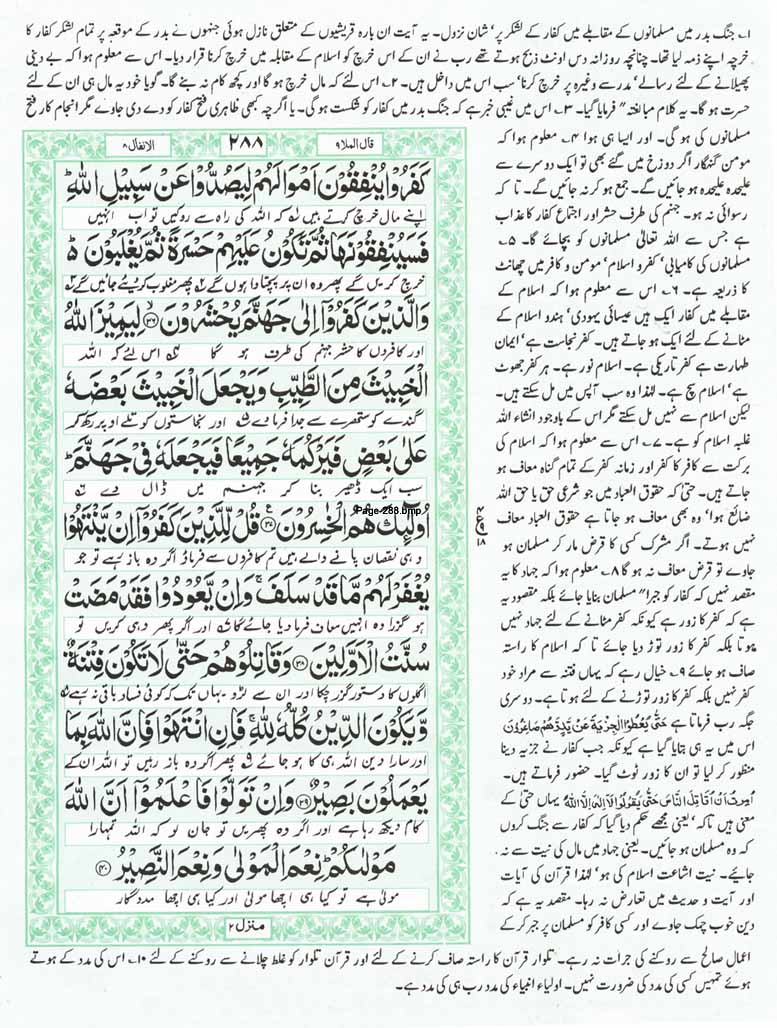 ۱۔ جنگ بدر میں مسلمانوں کے مقابلے میں کفار کے لشکر پر' شان نزول۔ یہ آیت ان بارہ قریشیوں کے متعلق نازل ہوئی جنہوں نے بدر کے موقعہ پر تمام لشکر کفار کا
خرچہ اپنے ذمہ لیا تھا۔ چنانچہ روزانہ دس اونٹ ذبح ہوتے تھے رب نے ان کے اس خرچ کو اسلام کے مقابلہ میں خرچ کرنا قرار دیا۔ اس سے معلوم ہوا کہ بے دینی
پھیلانے کے لئے رسالے' مدرسے وغیرہ پر خرچ کرنا' سب اس میں داخل ہیں۔ ۲۔ اس لئے کہ مال خرچ ہو گا اور کچھ کام نہ بنے گا۔ گویا خود یہ مال ہی ان کے لئے
حسرت ہو گا۔ یہ کلام مبالغتہ" فرمایا گیا۔ ۳۔ اس میں غیبی خبر ہے کہ جنگ بدر میں کفار کو شکست ہوگی۔ یا اگرچہ کبھی ظاہری فتح کفار کو دے دی جاوے مگر انجام کار فتح
مسلمانوں کی ہو گی۔ اور ایسا ہی ہوا ۴۔ معلوم ہوا کہ
مومن گنہگار اگر دوزخ میں گئے بھی تو ایک دوسرے سے
علیحدہ علیحدہ ہو جائیں گے۔ جمع ہو کر نہ جائیں گے۔ تا کہ
رسوائی نہ ہو۔ جہنم کی طرف حشر اور اجتماع کفار کا عذاب
ہے جس سے اللہ تعالیٰ مسلمانوں کو بچائے گا۔ ۵۔
مسلمانوں کی کامیابی' کفر و اسلام' مومن و کافر میں چھانٹ
کا ذریعہ ہے۔ ۶۔ اس سے معلوم ہوا کہ اسلام کے
مقابلے میں کفار ایک ہیں عیسائی یہودی' ہندو اسلام کے
مٹانے کے لئے ایک ہو جاتے ہیں۔ کفر نجاست ہے' ایمان
طہارت ہے کفر تاریکی ہے۔ اسلام نور ہے۔ ہر کفر جھوٹ
ہے' اسلام سچ ہے۔ لہٰذا وہ سب آپس میں مل سکتے ہیں۔
لیکن اسلام سے نہیں مل سکتے مگر اس کے باوجود انشاء اللہ
غلبہ اسلام کو ہے۔ ۷۔ اس سے معلوم ہوا کہ اسلام کی
برکت سے کافر کا کفر اور زمانہ کفر کے تمام گناہ معاف ہو
جاتے ہیں۔ حتیٰ کہ حقوق العباد میں جو شرعی حق یا حق اللہ
ضائع ہوا' وہ بھی معاف ہو جاتا ہے حقوق العباد معاف
نہیں ہوتے۔ اگر مشرک کسی کا قرض مار کر مسلمان ہو
جاوے تو قرض معاف نہ ہو گا ۸۔ معلوم ہوا کہ جہاد کا یہ
مقصد نہیں کہ کفار کو جبرا" مسلمان بنایا جائے بلکہ مقصود یہ
ہے کہ کفر کا زور ہے کیونکہ کفر مٹانے کے لئے جہاد نہیں
ہوتا بلکہ کفر کا زور توڑ دیا جائے تا کہ اسلام کا راستہ
صاف ہو جائے ۹۔ خیال رہے کہ یہاں فتنہ سے مراد خود
کفر نہیں بلکہ کفر کا زور توڑنے کے لئے ہوتا ہے۔ دوسری
جگہ رب فرماتا ہے حَتّٰى يُعْطُوا الْجِزْيَةَ عَنْ يَّدٍ وَّهُمْ صَاغِرُوْنَ
اس میں یہ ہی بتایا گیا ہے کیونکہ جب کفار نے جزیہ دینا
منظور کر لیا تو ان کا زور ٹوٹ گیا۔ حضور فرماتے ہیں۔
اُمِرْتُ اَنْ اُقَاتِلَ النَّاسَ حَتّٰى يَقُوْلُوْا لَا اِلٰهَ اِلَّا اللّٰهُ یہاں حتیٰ کے
معنی ہیں تاکہ' یعنی مجھے حکم دیا گیا کہ کفار سے جنگ کروں
کہ وہ مسلمان ہو جائیں۔ یعنی جہاد میں مال کی نیت سے نہ
جائے۔ نیت اشاعت اسلام کی ہو' لہٰذا قرآن کی آیات
اور آیت و حدیث میں تعارض نہ رہا۔ مقصد یہ ہے کہ
دین خوب چمک جاوے اور کسی کافر کو مسلمان پر جبر کر کے
قال الملا ۹ ۲۸۸ الانفال ۸
كَفَرُوْا يُنْفِقُوْنَ اَمْوَالَهُمْ لِيَصُدُّوْا عَنْ سَبِيْلِ اللّٰهِ ؕ
اپنے مال خرچ کرتے ہیں کہ اللہ کی راہ سے روکیں تو اب انہیں
فَسَيُنْفِقُوْنَهَا ثُمَّ تَكُوْنُ عَلَيْهِمْ حَسْرَةً ثُمَّ يُغْلَبُوْنَ ؕ
خرچ کریں گے پھر وہ ان پر پچھتاوا ہوں گے پھر مغلوب کر دیئے جائیں گے
وَالَّذِيْنَ كَفَرُوْۤا اِلٰى جَهَنَّمَ يُحْشَرُوْنَ ﴿۳۶﴾ لِيَمِيْزَ اللّٰهُ
اور کافروں کا حشر جہنم کی طرف ہو گا اس لئے کہ اللہ
الْخَبِيْثَ مِنَ الطَّيِّبِ وَيَجْعَلَ الْخَبِيْثَ بَعْضَهٗ
گندے کو ستھرے سے جدا فرما دے اور نجاستوں کو تلے اوپر رکھ کر
عَلٰى بَعْضٍ فَيَرْكُمَهٗ جَمِيْعًا فَيَجْعَلَهٗ فِيْ جَهَنَّمَ ؕ
سب ایک ڈھیر بنا کر جہنم میں ڈال دے
اُولٰٓئِكَ هُمُ الْخٰسِرُوْنَ ﴿۳۷﴾ قُلْ لِّلَّذِيْنَ كَفَرُوْۤا اِنْ يَّنْتَهُوْا
Page-288.bmp
وہی نقصان پانے والے ہیں تم کافروں سے فرماؤ اگر وہ باز رہے تو جو
يُغْفَرْ لَهُمْ مَّا قَدْ سَلَفَ ۚ وَاِنْ يَّعُوْدُوْا فَقَدْ مَضَتْ
ہو گزرا وہ انہیں معاف فرما دیا جائے گا اور اگر پھر وہی کریں تو
سُنَّتُ الْاَوَّلِيْنَ ﴿۳۸﴾ وَقَاتِلُوْهُمْ حَتّٰى لَا تَكُوْنَ فِتْنَةٌ
اگلوں کا دستور گزر چکا اور ان سے لڑو یہاں تک کہ کوئی فساد باقی نہ رہے
وَّيَكُوْنَ الدِّيْنُ كُلُّهٗ لِلّٰهِ ۚ فَاِنِ انْتَهَوْا فَاِنَّ اللّٰهَ بِمَا
اور سارا دین اللہ ہی کا ہو جائے پھر اگر وہ باز رہیں تو اللہ ان کے
يَعْمَلُوْنَ بَصِيْرٌ ﴿۳۹﴾ وَاِنْ تَوَلَّوْا فَاعْلَمُوْۤا اَنَّ اللّٰهَ
کام دیکھ رہا ہے اور اگر وہ پھریں تو جان لو کہ اللہ تمہارا
مَوْلٰىكُمْ ؕ نِعْمَ الْمَوْلٰى وَنِعْمَ النَّصِيْرُ ﴿۴۰﴾
مولیٰ ہے تو کیا ہی اچھا مولیٰ اور کیا ہی اچھا مددگار
منزل ۲
اعمال صالح سے روکنے کی جرات نہ رہے۔ تلوار قرآن کا راستہ صاف کرنے کے لئے اور قرآن تلوار کو غلط چلانے سے روکنے کے لئے ۱۰۔ اس کی مدد کے ہوتے
ہوئے تمہیں کسی کی مدد کی ضرورت نہیں۔ اولیاء انبیاء کی مدد رب ہی کی مدد ہے۔